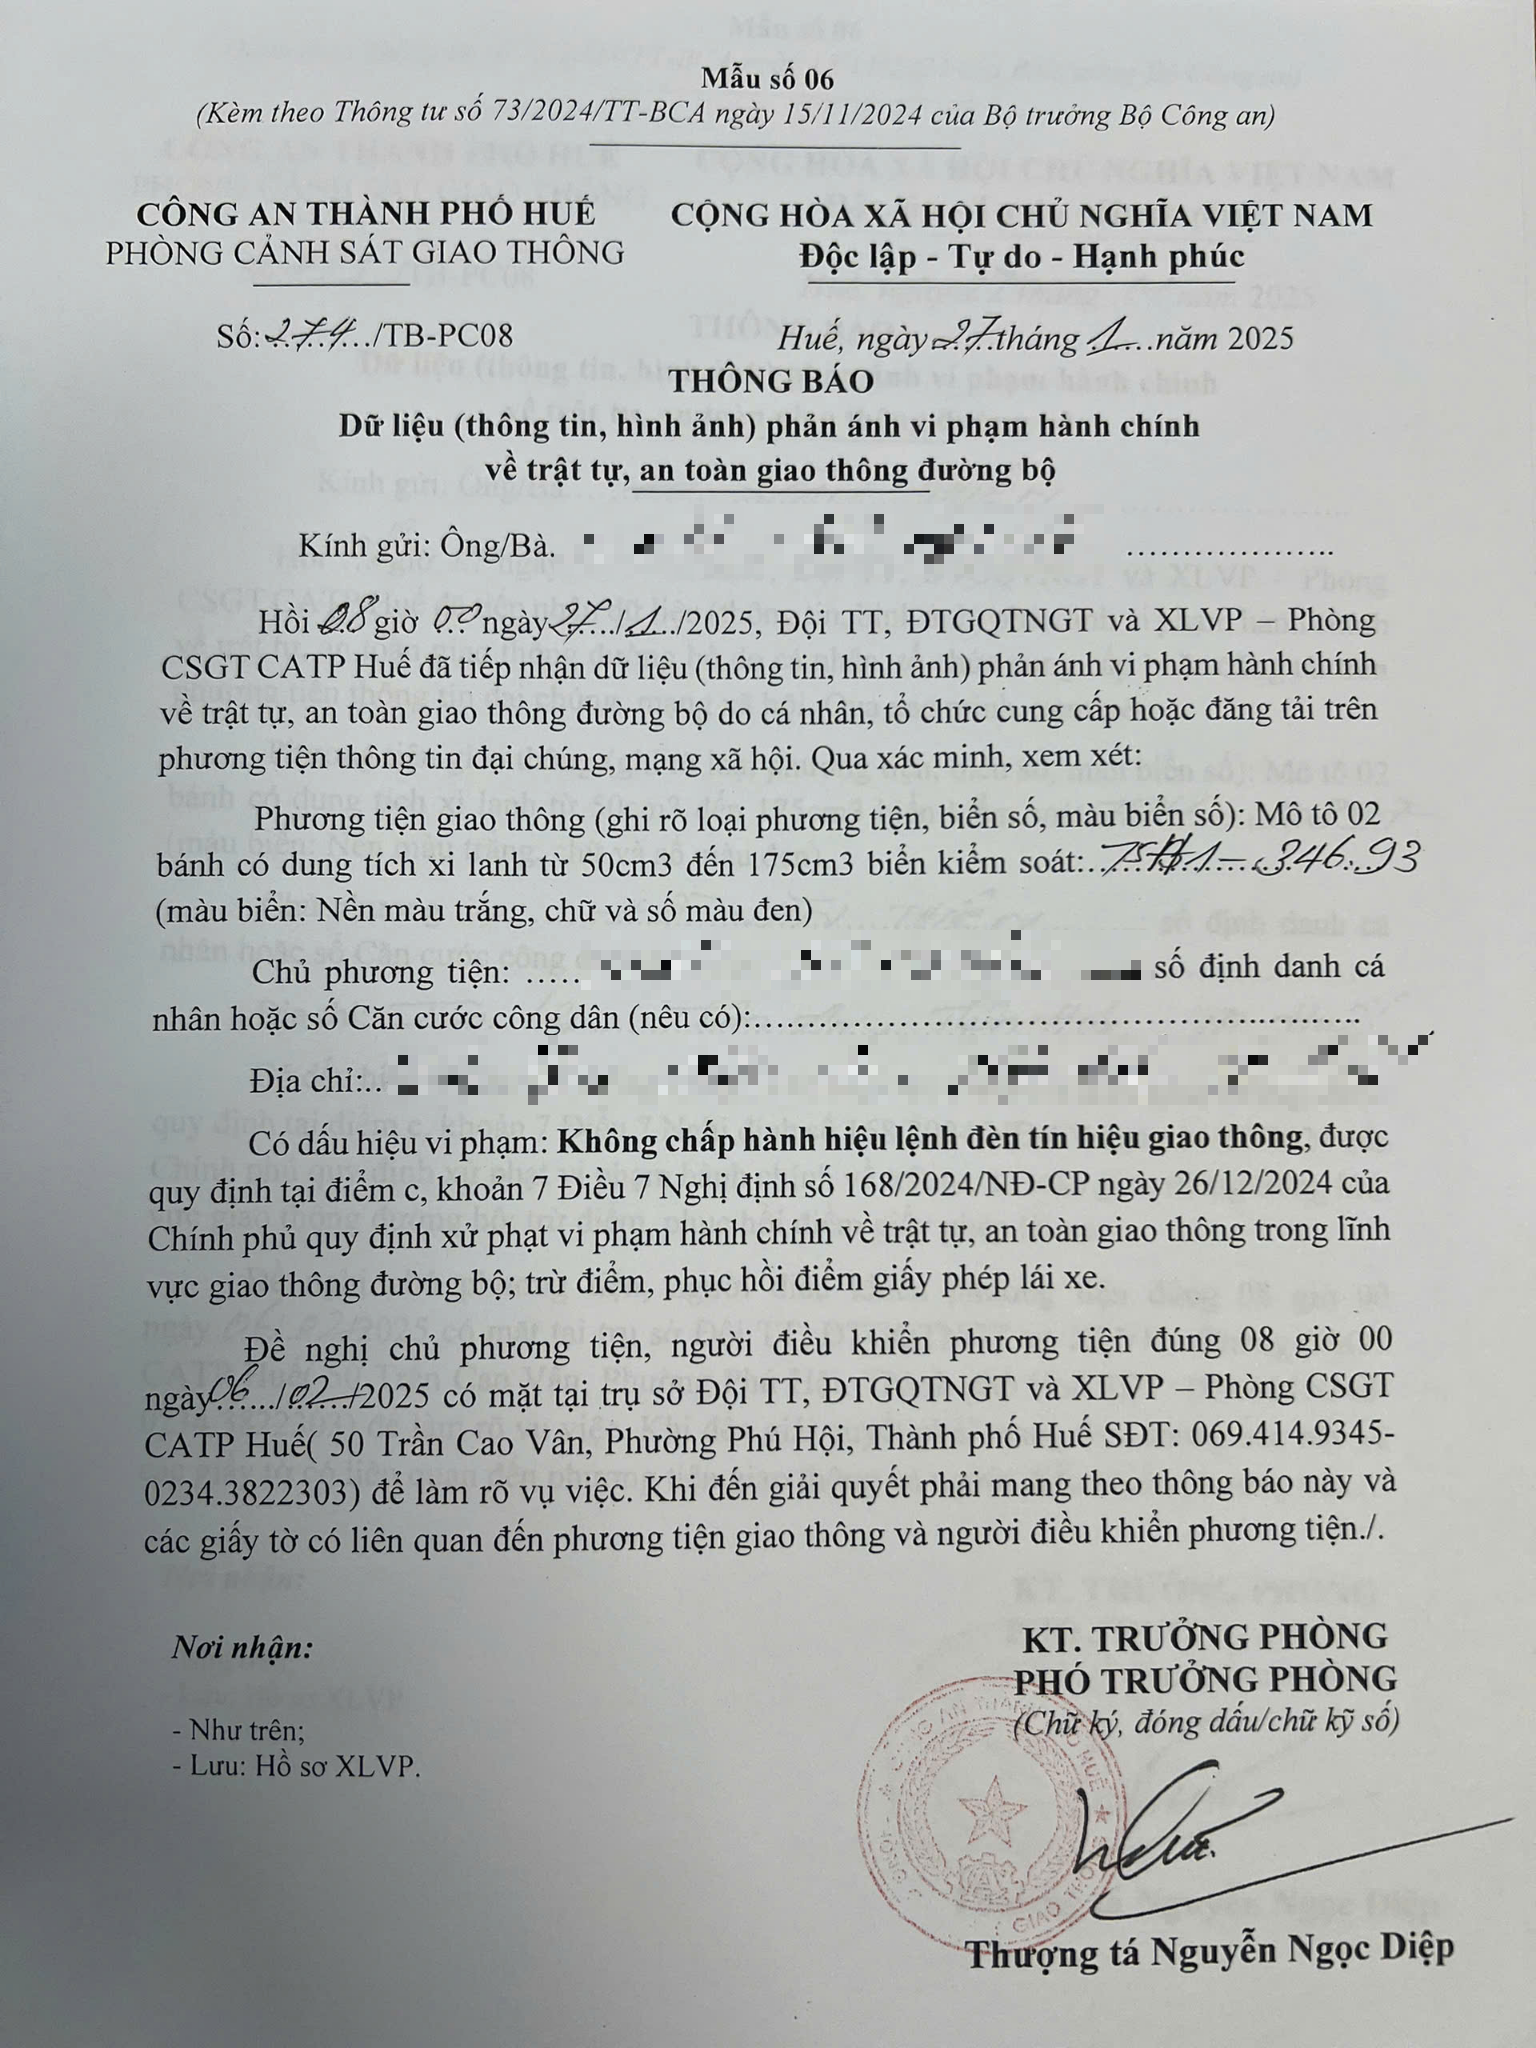 Mẫu số 06
(Kèm theo Thông tư số 73/2024/TT-BCA ngày 15/11/2024 của Bộ trưởng Bộ Công an)
CÔNG AN THÀNH PHỐ HUẾ
PHÒNG CẢNH SÁT GIAO THÔNG
CỘNG HÒA XÃ HỘI CHỦ NGHĨA VIỆT NAM
Độc lập - Tự do - Hạnh phúc
Số: 274 /TB-PC08
Huế, ngày 27 tháng 1 năm 2025
THÔNG BÁO
Dữ liệu (thông tin, hình ảnh) phản ánh vi phạm hành chính
về trật tự, an toàn giao thông đường bộ
Kính gửi: Ông/Bà.
Hồi 08 giờ 00 ngày 27/1/2025, Đội TT, ĐTGQTNGT và XLVP – Phòng
CSGT CATP Huế đã tiếp nhận dữ liệu (thông tin, hình ảnh) phản ánh vi phạm hành chính
về trật tự, an toàn giao thông đường bộ do cá nhân, tổ chức cung cấp hoặc đăng tải trên
phương tiện thông tin đại chúng, mạng xã hội. Qua xác minh, xem xét:
Phương tiện giao thông (ghi rõ loại phương tiện, biển số, màu biển số): Mô tô 02
bánh có dung tích xi lanh từ 50cm3 đến 175cm3 biển kiểm soát: 75H1-346.93
(màu biển: Nền màu trắng, chữ và số màu đen)
Chủ phương tiện: số định danh cá
nhân hoặc số Căn cước công dân (nêu có):
Địa chỉ:
Có dấu hiệu vi phạm: Không chấp hành hiệu lệnh đèn tín hiệu giao thông, được
quy định tại điểm c, khoản 7 Điều 7 Nghị định số 168/2024/NĐ-CP ngày 26/12/2024 của
Chính phủ quy định xử phạt vi phạm hành chính về trật tự, an toàn giao thông trong lĩnh
vực giao thông đường bộ; trừ điểm, phục hồi điểm giấy phép lái xe.
Đề nghị chủ phương tiện, người điều khiển phương tiện đúng 08 giờ 00
ngày 06/02/2025 có mặt tại trụ sở Đội TT, ĐTGQTNGT và XLVP – Phòng CSGT
CATP Huế( 50 Trần Cao Vân, Phường Phú Hội, Thành phố Huế SĐT: 069.414.9345-
0234.3822303) để làm rõ vụ việc. Khi đến giải quyết phải mang theo thông báo này và
các giấy tờ có liên quan đến phương tiện giao thông và người điều khiển phương tiện./.
Nơi nhận:
- Như trên;
- Lưu: Hồ sơ XLVP.
KT. TRƯỞNG PHÒNG
PHÓ TRƯỞNG PHÒNG
(Chữ ký, đóng dấu/chữ ký số)
Thượng tá Nguyễn Ngọc Diệp